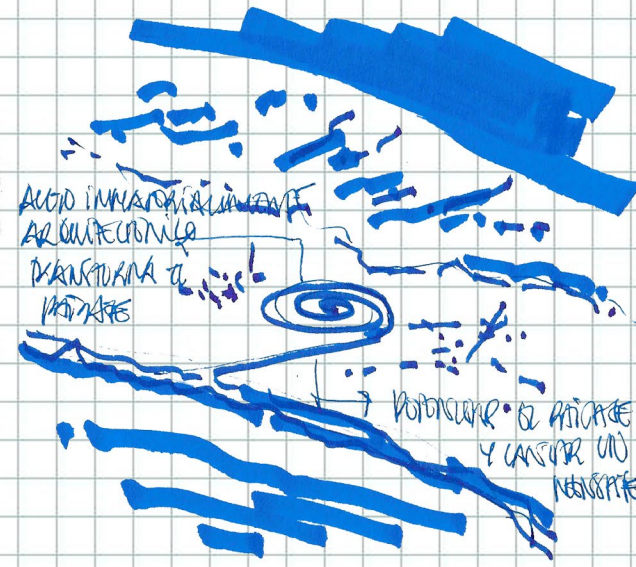 ALGO INMATERIALMENTE
ARQUITECTONICO
TRANSFORMA EL
PAISAJE
POTENCIAR EL PAISAJE
Y LANZAR UN
MENSAJE